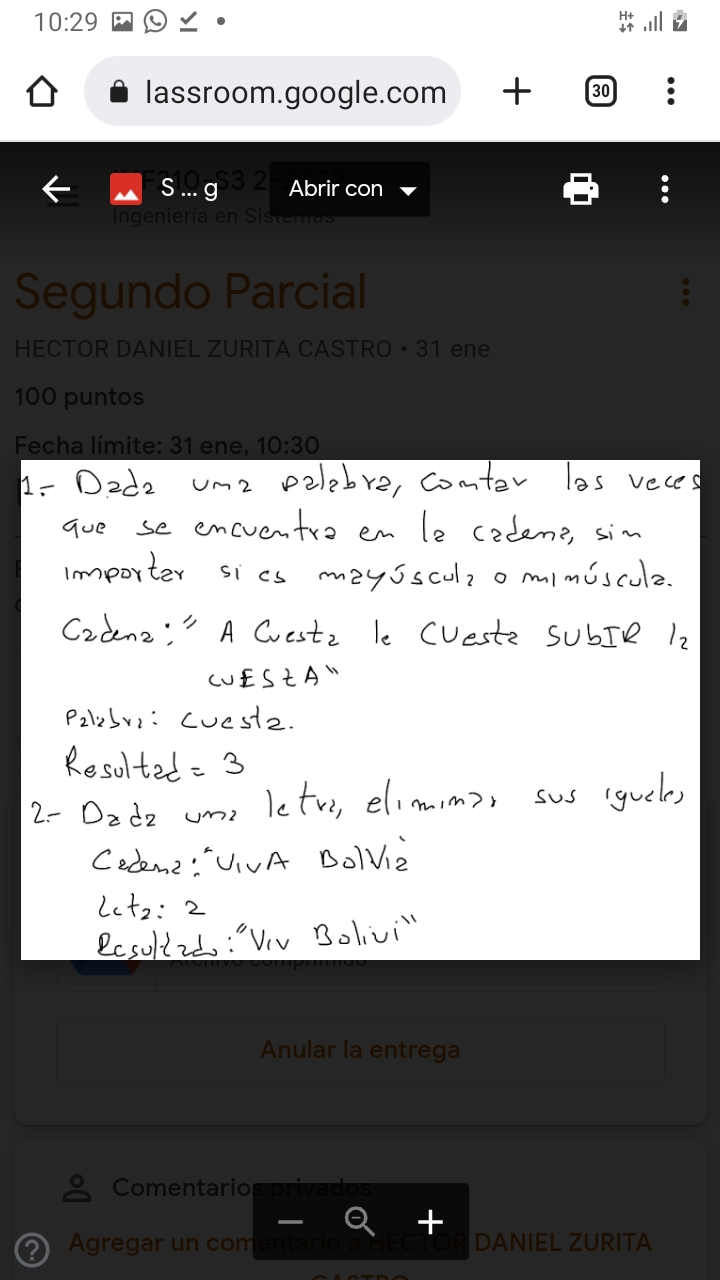 10:29
H+
lassroom.google.com
30
INF210-S3 2-2022
S ... g
Abrir con
Ingeniería en Sistemas
Segundo Parcial
HECTOR DANIEL ZURITA CASTRO • 31 ene
100 puntos
Fecha límite: 31 ene, 10:30
1.- Dada una palabra, contar las veces
que se encuentra en la cadena, sin
importar si es mayúscula o minúscula.
Cadena: "A Cuesta le CUesta SUbIR la
CUEStA"
Palabra: cuesta.
Resultad = 3
2.- Dada una letra, eliminar sus iguales
Cadena: "VivA BolVia
Leta: a
Resultado: "Viv Bolivi"
Archivo comprimido
Anular la entrega
Comentarios privados
Agregar un comentario a HECTOR DANIEL ZURITA
CASTRO